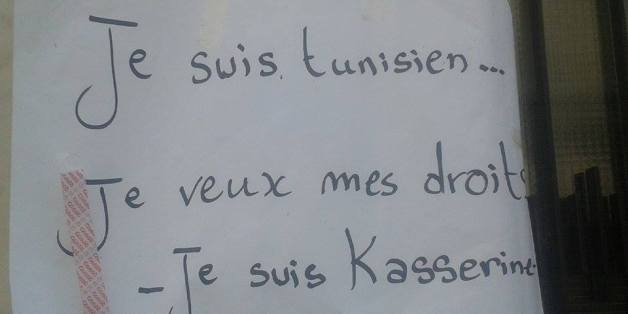 Je suis tunisien...
Je veux mes droits
- Je suis Kasserine